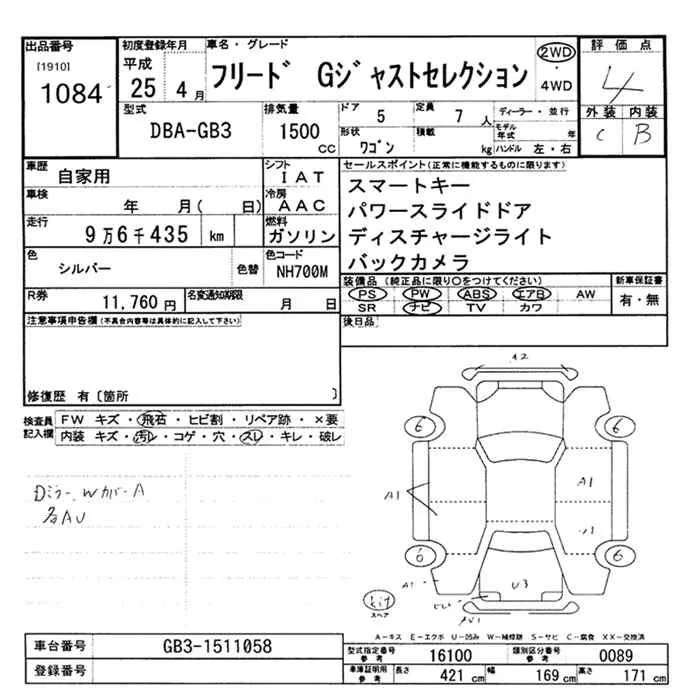 出品番号 初度登録年月 車名・グレード 2WD ・ 4WD 評価点
[1910] 1084 平成 25 4月 フリード Gジャストセレクション 4
外装 内装
C B
型式 排気量 ドア 5 定員 7人 ディーラー・並行
DBA-GB3 1500cc 形状 ワゴン 積載 kg モデル年式 年
ハンドル 左・右
車歴 自家用 シフト IAT セールスポイント(正常に機能するものに限ります)
車検 年 月( 日) 冷房 AAC スマートキー
パワースライドドア
走行 9万6千435 km 燃料 ガソリン ディスチャージライト
色 シルバー 色替 色コード NH700M バックカメラ
装備品(純正品に限り○をつけてください) 新車保証書
R券 11,760円 名変通知期限 月 日 PS PW ABS エアB AW 有・無
SR ナビ TV カワ
注意事項申告欄(不具合内容等は具体的に記入して下さい) 後日品
修復歴 有〔箇所 〕
検査員記入欄 FW キズ・飛石・ヒビ割・リペア跡・×要
内装 キズ・汚レ・コゲ・穴・スレ・キレ・破レ
Dミラー、Wカバー A
各AU
A2
6 6
A1 A1
U1
6 6
A1 U3
kit
スペア
A-キズ E-エクボ U-凹み W-補修跡 S-サビ C-腐食 XX-交換済
車台番号 GB3-1511058 型式指定番号 参考 16100 類別区分番号 参考 0089
登録番号 車庫証明用 参考 長さ 421cm 幅 169cm 高さ 171cm